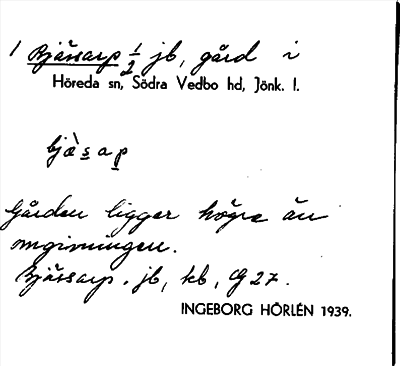 1 Bjässarp 1/2 jb, gård i
Höreda sn, Södra Vedbo hd, Jönk. l.
bjæ̀sap
Gården ligger högre än
omgivningen.
Bjässarp. jb, kb, G 27.
INGEBORG HÖRLÉN 1939.